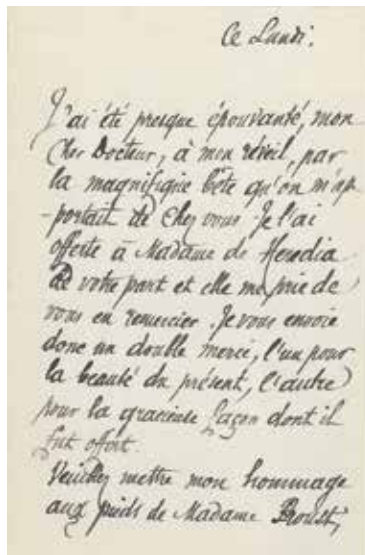 Ce Lundi.
J'ai été presque épouvanté, mon
Cher Docteur, à mon réveil, par
la magnifique bête qu'on m'ap
-portait de chez vous. Je l'ai
offerte à Madame de Heredia
de votre part et elle me prie de
vous en remercier. Je vous envoie
donc un double merci, l'un pour
la beauté du présent, l'autre
pour la gracieuse façon dont il
fut offert.
Veuillez mettre mon hommage
aux pieds de Madame Proust,